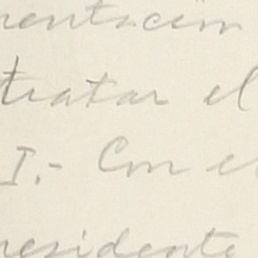 mentación
tratar el
I.- Con el
residente